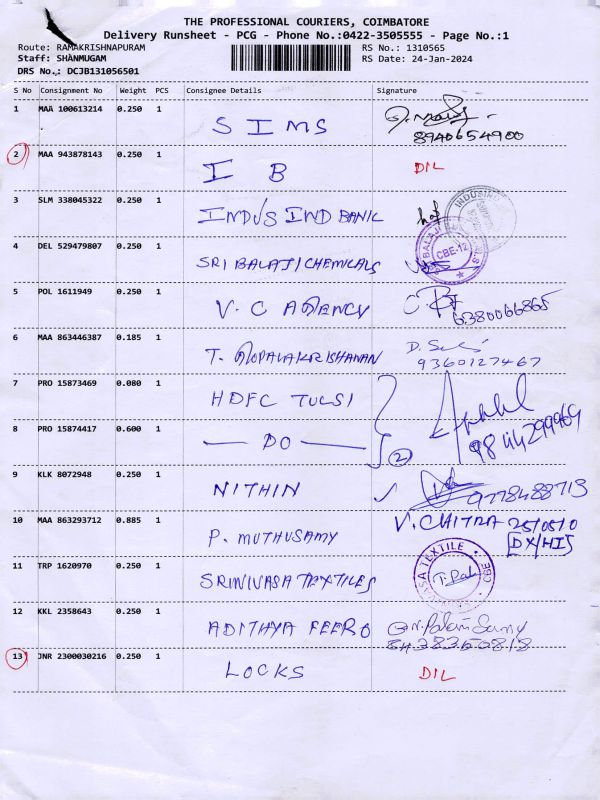 THE PROFESSIONAL COURIERS, COIMBATORE
Delivery Runsheet - PCG - Phone No.:0422-3505555 - Page No.:1
Route: RAMAKRISHNAPURAM RS No.: 1310565
Staff: SHANMUGAM RS Date: 24-Jan-2024
DRS No.: DCJB131056501
S No Consignment No Weight PCS Consignee Details Signature
1 MAA 100613214 0.250 1 SIMS
8940654900
2 MAA 943878143 0.250 1 I B DIL
3 SLM 338045322 0.250 1 INDUS IND BANK
4 DEL 529479807 0.250 1 SRI BALAJI CHEMICALS CBE-12
5 POL 1611949 0.250 1 V. C AGENCY
6380066865
6 MAA 863446387 0.185 1 T. GOPALAKRISHANAN
9360127467
7 PRO 15873469 0.080 1 HDFC TULSI
8 PRO 15874417 0.600 1 — DO — 2
9844299969
9 KLK 8072948 0.250 1 NITHIN 9778488713
10 MAA 863293712 0.885 1 P. MUTHUSAMY V. CHITRA
11 TRP 1620970 0.250 1 SRINIVASA TEXTILES
12 KKL 2358643 0.250 1 ADITHYA FEERO
8438350818
13 JNR 2300030216 0.250 1 LOCKS DIL